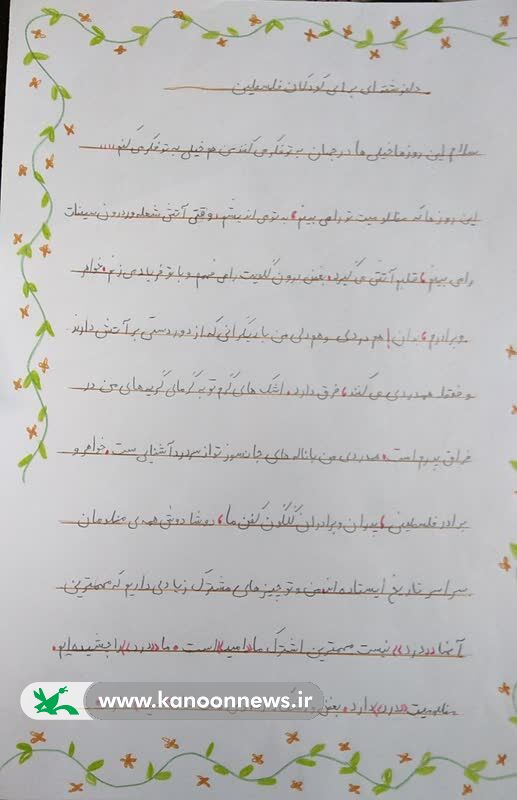 دلنوشته ای برای کودکان فلسطین
سلام این روزها خیلی ها در جهان به تو فکر می کنند من هم خیلی به تو فکر می کنم....
این روزها که مظلومیت تو را می بینم، به تو می اندیشم، وقتی آتش شعله ور درون سینه ات
را می بینم، قلبم آتش می گیرد. بغض درون گلویت را می فهمم و با تو فریاد می زنم. خواهر
و برادرم، بدان! هم دردی و هم دلی من با دیگرانی که از دور دستی بر آتش دارند
و فقط همدردی می کنند، فرق دارد. اشک های گرم تو به گرمای گریه های من در
فراق پدرم است. همدردی من با ناله های جان سوز تو از سر درد آشنایی ست. خواهر و
برادر فلسطینی، پدران و برادران گلگون کفن ما، دوشادوش همه ی مظلومان
سراسر تاریخ ایستاده اند. من و تو چیزهای مشترک زیادی داریم که مهمترین
آنها «درد» نیست مهمترین اشتراک ما «امید» است. ما «درد» را چشیده ایم.
مظلومیت «درد» دارد. بغض
www.kanoonnews.ir